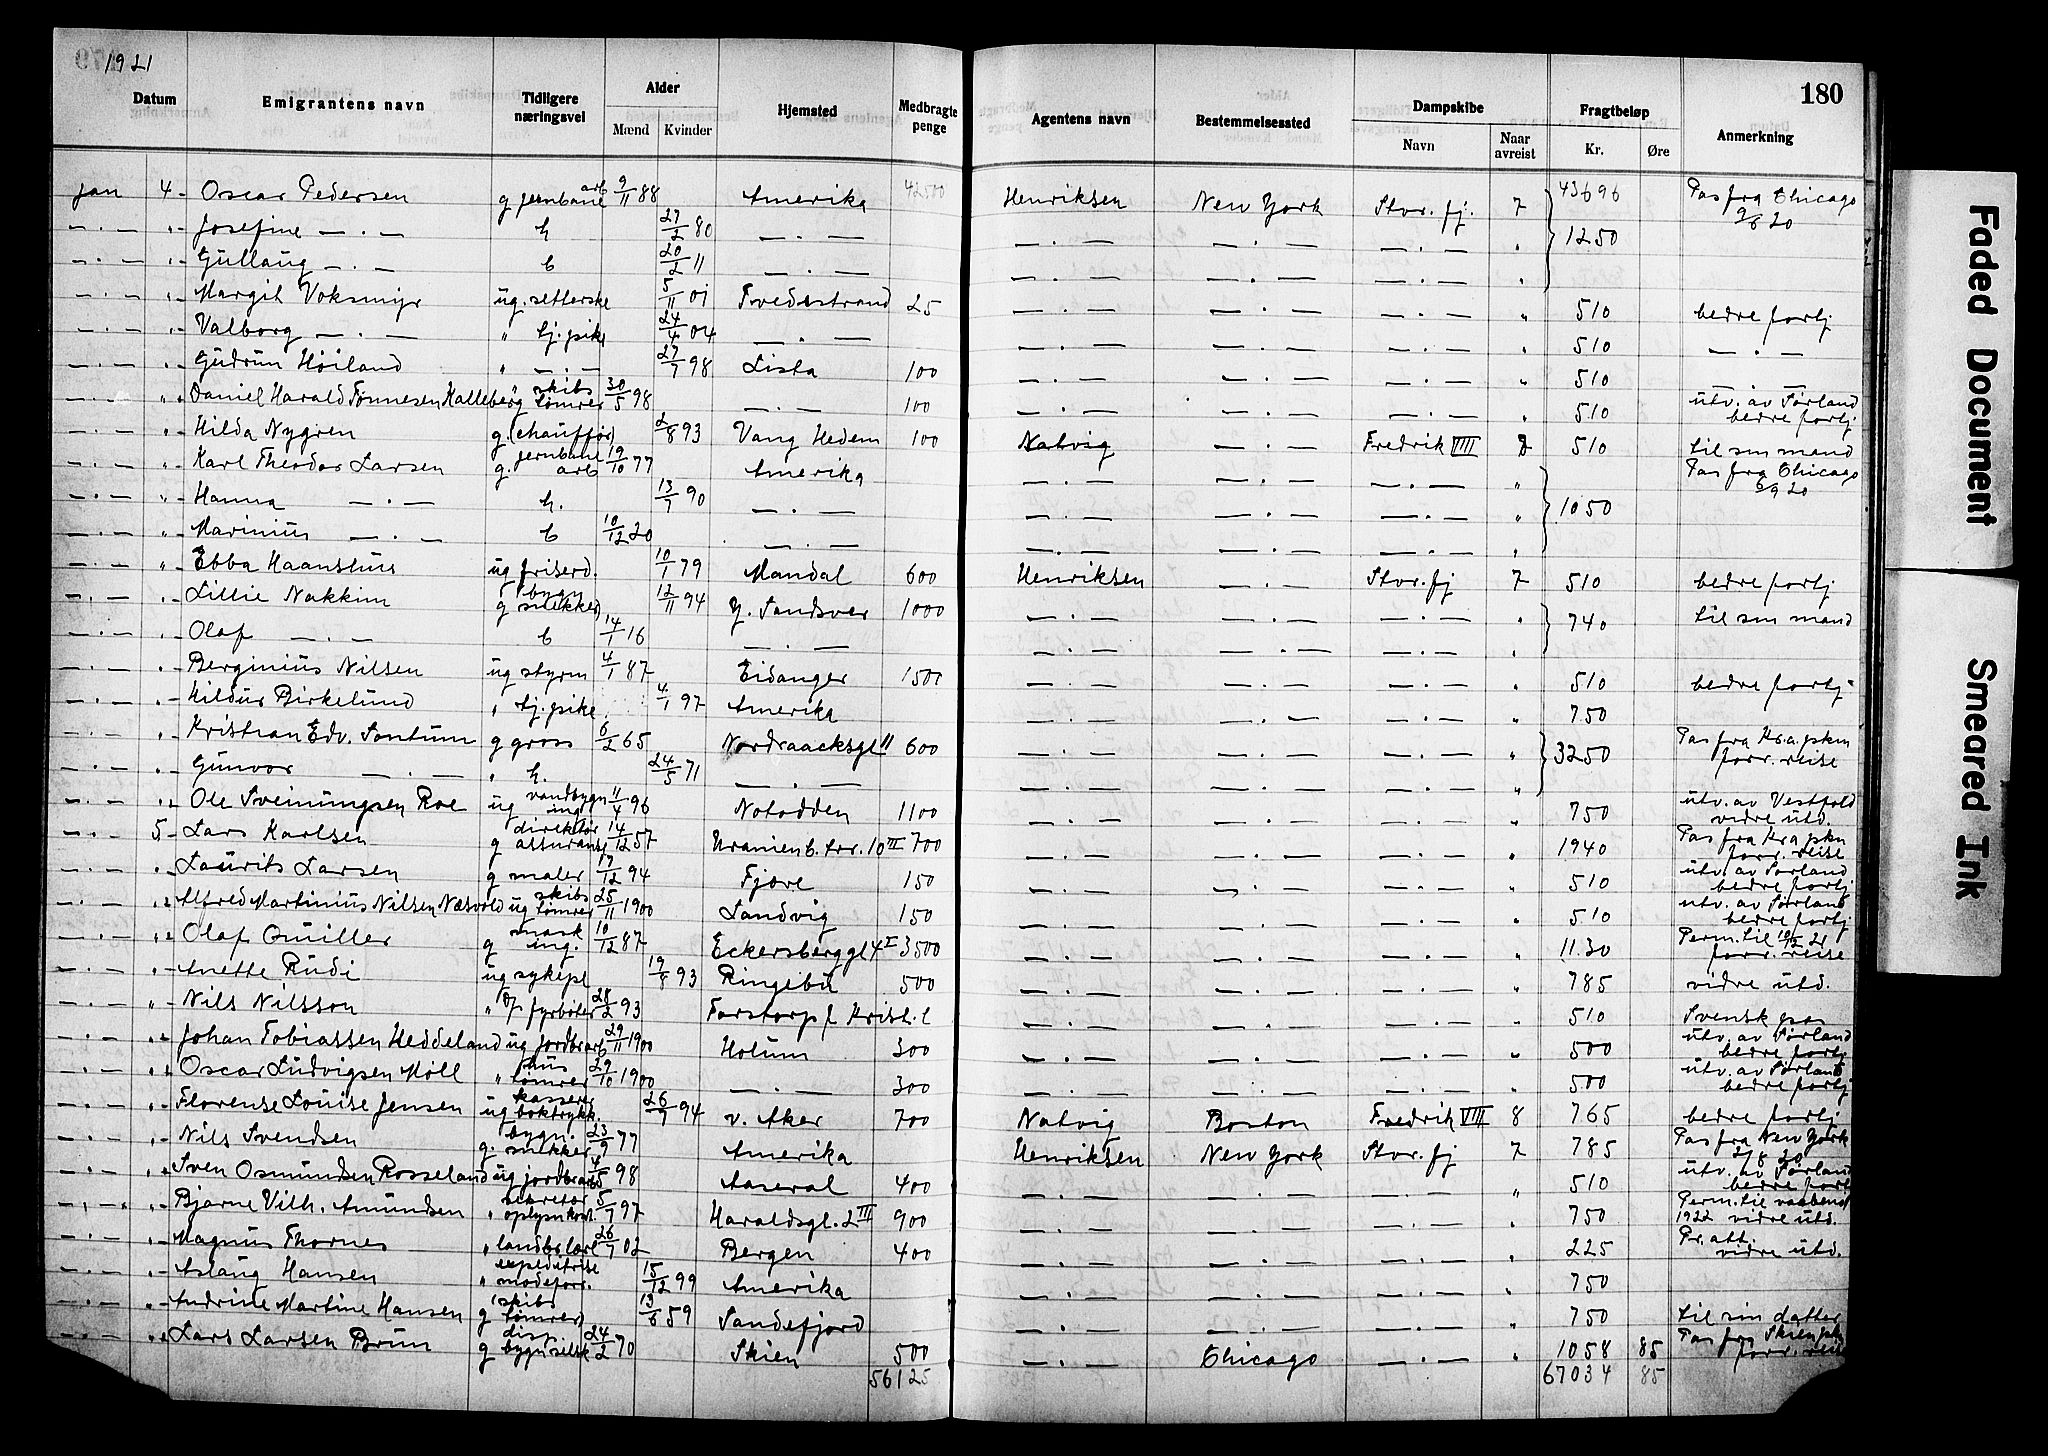 1921
180
Datum Emigrantens navn Tidligere næringsvei Alder Mænd Kvinder Hjemsted Medbragte penge Agentens navn Bestemmelsessted Dampskibe Navn Naar avreist Fragtbeløp Kr. Øre Anmerkning
42500 43696
jan 4 - Oscar Pedersen g jernbane arb 9/11 88 Amerika Henriksen New York Stvr. fj. 7 Pas fra Chicago 9/8 20
— . — " - Josefine — . — h 27/2 80 — . — — . — — . — — . — " 1250
— . — " - Gullaug — . — b 20/2 11 — . — — . — — . — — . — "
— . — " - Margit Voksmyr ug. setterske 5/11 01 Tvedestrand 25 — . — — . — — . — " 510 bedre fortj
— . — " - Valborg — . — " tj. pike 24/4 04 — . — — . — — . — — . — " 510 — . —
— . — " - Gudrun Høiland " — . — 27/7 98 Lista 100 — . — — . — — . — " 510 — . —
— . — " - Daniel Harald Tønnesen Kalleberg " skibs tømrer 30/5 98 — . — 100 — . — — . — — . — " 510 utv. av Sørland bedre fortj
— . — " - Hilda Nygren g. (chauffør) 2/8 93 Vang Hedem 100 Natvig — . — Fredrik VIII 7 510 til sin mand
— . — " - Karl Theodor Larsen g. jernbane arb 19/10 77 Amerika — . — — . — — . — " Pas fra Chicago 8/9 20
— . — " - Hanna — . — h. 13/7 90 — . — — . — — . — — . — " 1050
— . — " - Marinius — . — b 10/12 20 — . — — . — — . — — . — "
— . — " - Ebba Haanshus ug friserd. 10/1 79 Mandal 600 Henriksen — . — Stvr. fj 7 510 bedre fortj
— . — " - Lillie Nakkim g (bygn snekker) 12/11 94 Y. Sandsver 1000 — . — — . — — . — " 740 til sin mand
— . — " - Olaf — . — b 14/1 16 — . — — . — — . — — . — "
— . — " - Berginius Nilsen ug styrm 4/1 87 Eidanger 1500 — . — — . — — . — " 510 bedre fortj
— . — " - Hildur Birkelund " tj. pike 4/1 97 Amerika — . — — . — — . — " 750
— . — " - Kristian Edv. Sontum g gross 6/2 65 Nordraacksgt 11 600 — . — — . — — . — " 3250 Pas fra Kra. pkm forr. reise
— . — " - Gunvor — . — " h. 24/5 71 — . — — . — — . — — . — "
— . — " - Ole Sveinungsen Roe ug vandbygn ing 11/4 96 Notodden 1100 — . — — . — — . — " 750 utv. av Vestfold vidre utd.
— . — 5 - Lars Karlsen g direktør assuranse 14/12 57 Uranienb. trr. 10 III 700 — . — — . — — . — " 1940 Pas fra Kra pkm forr. reise
— . — " - Laurits Larsen g maler 19/12 94 Fjære 150 — . — — . — — . — " 510 utv. av Sørland bedre fortj
— . — " - Alfred Martinius Nilsen Næsvold ug skibs tømrer 25/11 1900 Landvig 150 — . — — . — — . — " 510 utv. av Sørland bedre fortj
— . — " - Olaf Quiller g mask ing. 10/12 87 Eckersberggt 4 I 3500 — . — — . — — . — " 1130 Perm. til 10/12 21 forr. reise
— . — " - Anette Rudi ug sykepl 19/8 93 Ringebu 500 — . — — . — — . — " 785 vidre utd.
— . — " - Nils Nilsson " fyrbøter 28/2 93 Farstorp f Krist. l — . — — . — — . — " 510 Svensk pas
— . — " - Johan Tobiassen Heddeland ug jordbrarb 29/11 1900 Holum 300 — . — — . — — . — " 500 utv. av Sørland bedre fortj
— . — " - Oscar Ludvigsen Møll " hus tømrer 29/10 1900 — . — 300 — . — — . — — . — " 500 utv. av Sørland bedre fortj
— . — " - Florense Louise Jensen ug kasserer boktrykk. 26/7 94 v. Aker 700 Natvig Boston Fredrik VIII 8 765 bedre fortj
— . — " - Nils Svendsen g. bygn. snekker 23/9 77 Amerika Henriksen New York Stvr. fj 7 785 Pas fra New York 2/8 20
— . — " - Sven Osmundsen Rosseland ug jordbrarb 4/5 98 Aaseral 400 — . — — . — — . — " 510 utv. av Sørland bedre fort
— . — " - Bjarne Vilh. Amundsen " sekretær oplysn. kont. 5/7 97 Haraldsgt. 2 III 900 — . — — . — — . — " 750 Perm. til vaabend 1922 vidre utd.
— . — " - Magnus Thornes " landbr. lærl 26/7 02 Bergen 400 — . — — . — — . — " 225 Pr. att. vidre utd.
— . — " - Aslaug Hansen " expeditrise modeforr. 15/12 99 Amerika — . — — . — — . — " 750
— . — " - Andrine Martine Hansen g (skibs tømrer) 13/6 59 Sandefjord — . — — . — — . — " 750 til sin datter
— . — " - Lars Larsen Brun g disp. bygn selsk 24/2 70 Skien 500 — . — Chicago — . — " 1058 85 Pas fra Skien pk forr. reise
56125 67034 85
Faded Document
Smeared Ink